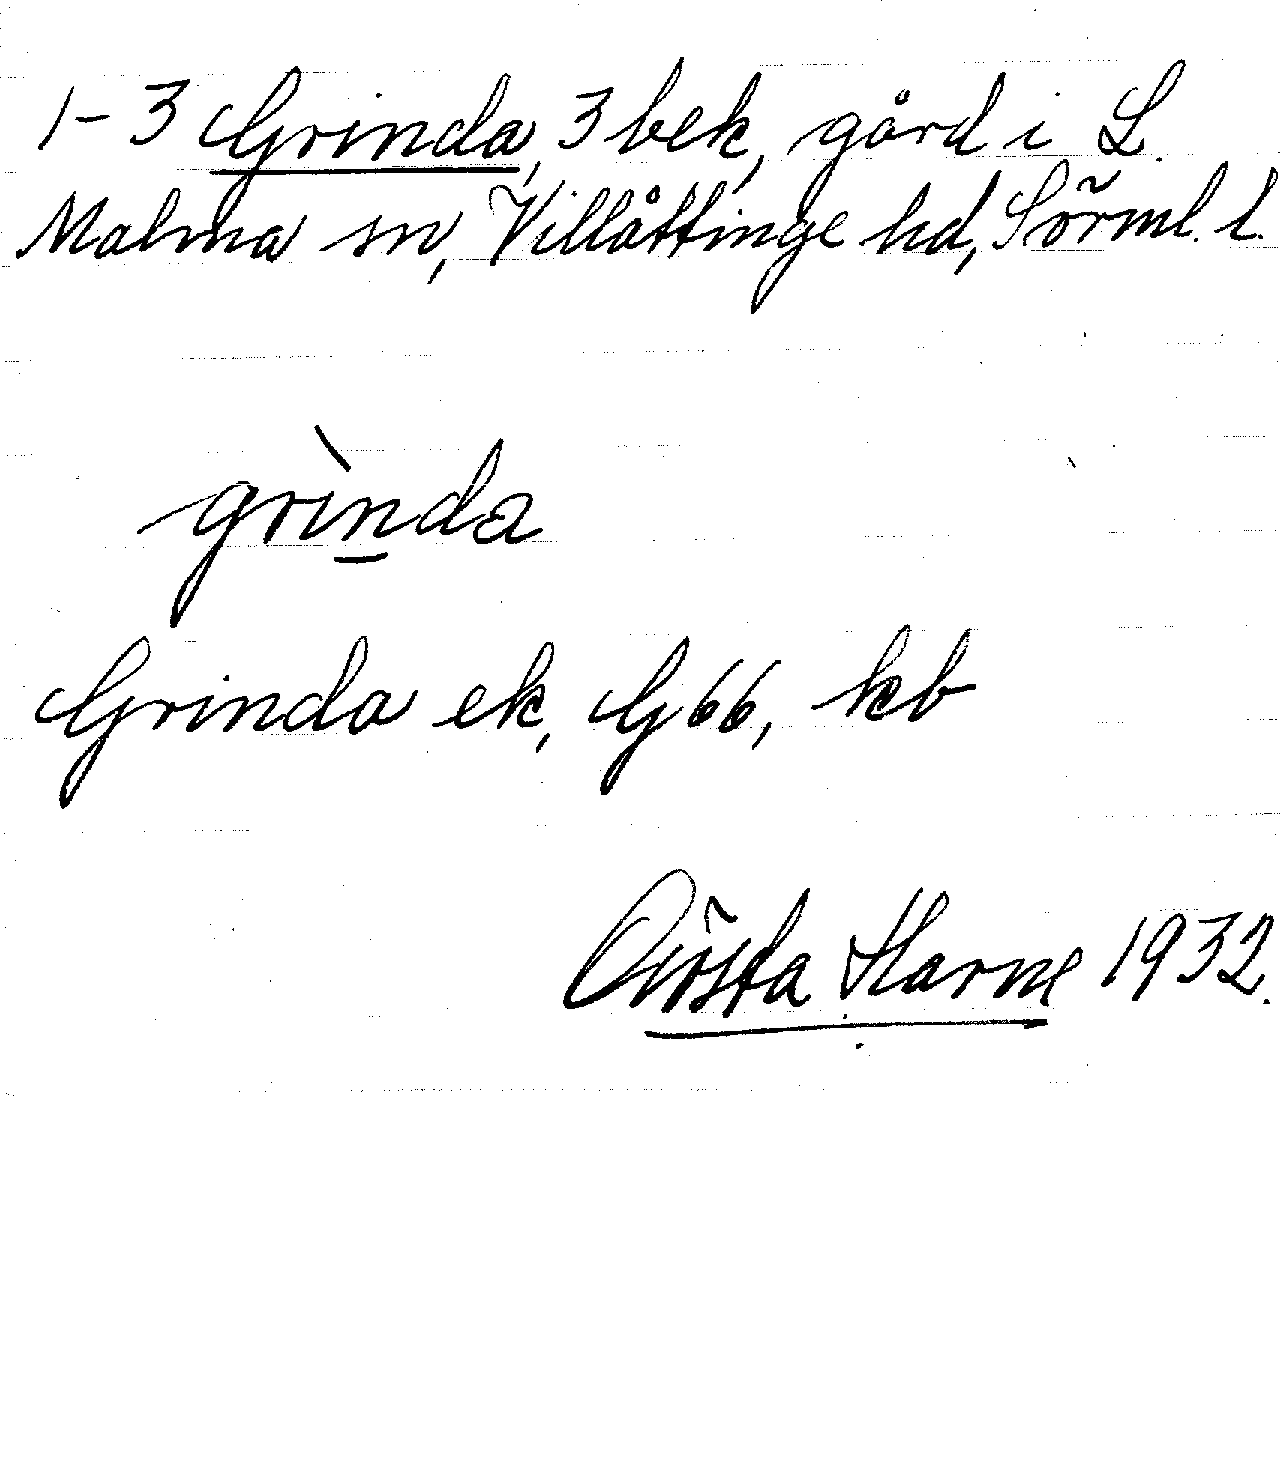 1-3 Grinda, 3 bek, gård i L.
Malma sn, Villåttinge hd, Sörml. l.
grìnda
Grinda ek, G 66, kb
Gösta Harne 1932.